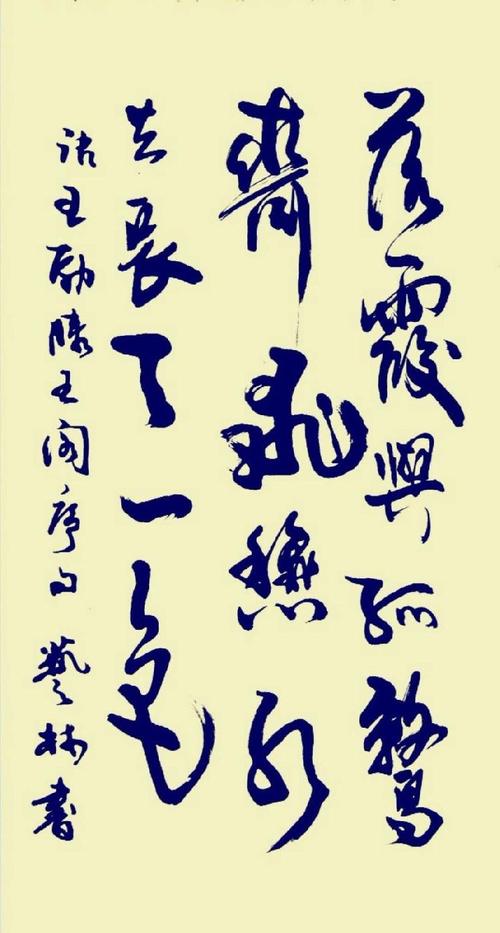 落霞與孤鶩
齊飛秋水
共長天一色
诗王勃滕王阁序句 藝林書